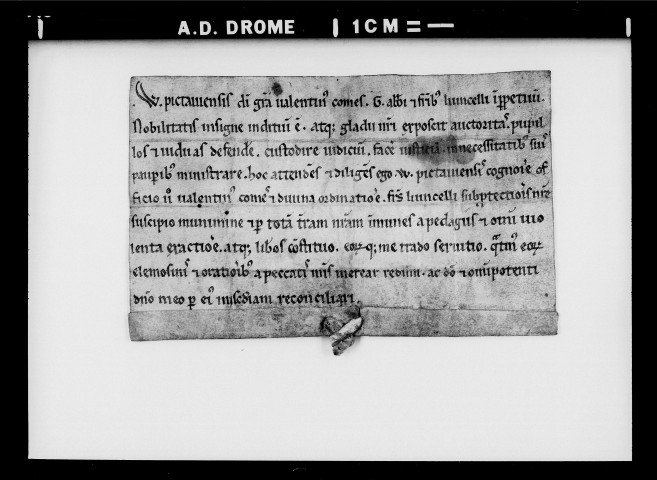 A.D. DROME 1CM = —
.W. pictauensis di grã ualentin' comes. G. abbi et frib' liuncelli i ppetuũ.
Nobilitatis insigne indiciũ ẽ. atq; gladii nri exposcit auctoritas. pupil
los et uiduas defende. custodire iudiciũ. face iusticiã. in necessitatib' suis
paupib' ministrare. hoc attendẽs et diligẽs ego .W. pictauensis cognoie. of
ficio ũ ualentin' comes et diuina ordinatioe. frs liuncelli sub ptectiois nre
suscipio munimine et p totã tram nram imunes a pedagiis et omi uio
lenta exactioe. atq; libos cõstituo. eoꝝ q; me trado seruitio. qtin' eoꝝ
elemosinis et oratioib' a peccatis meis merear redimi. ac dõ et omipotenti
dño meo p ei' misediam reconciliari.